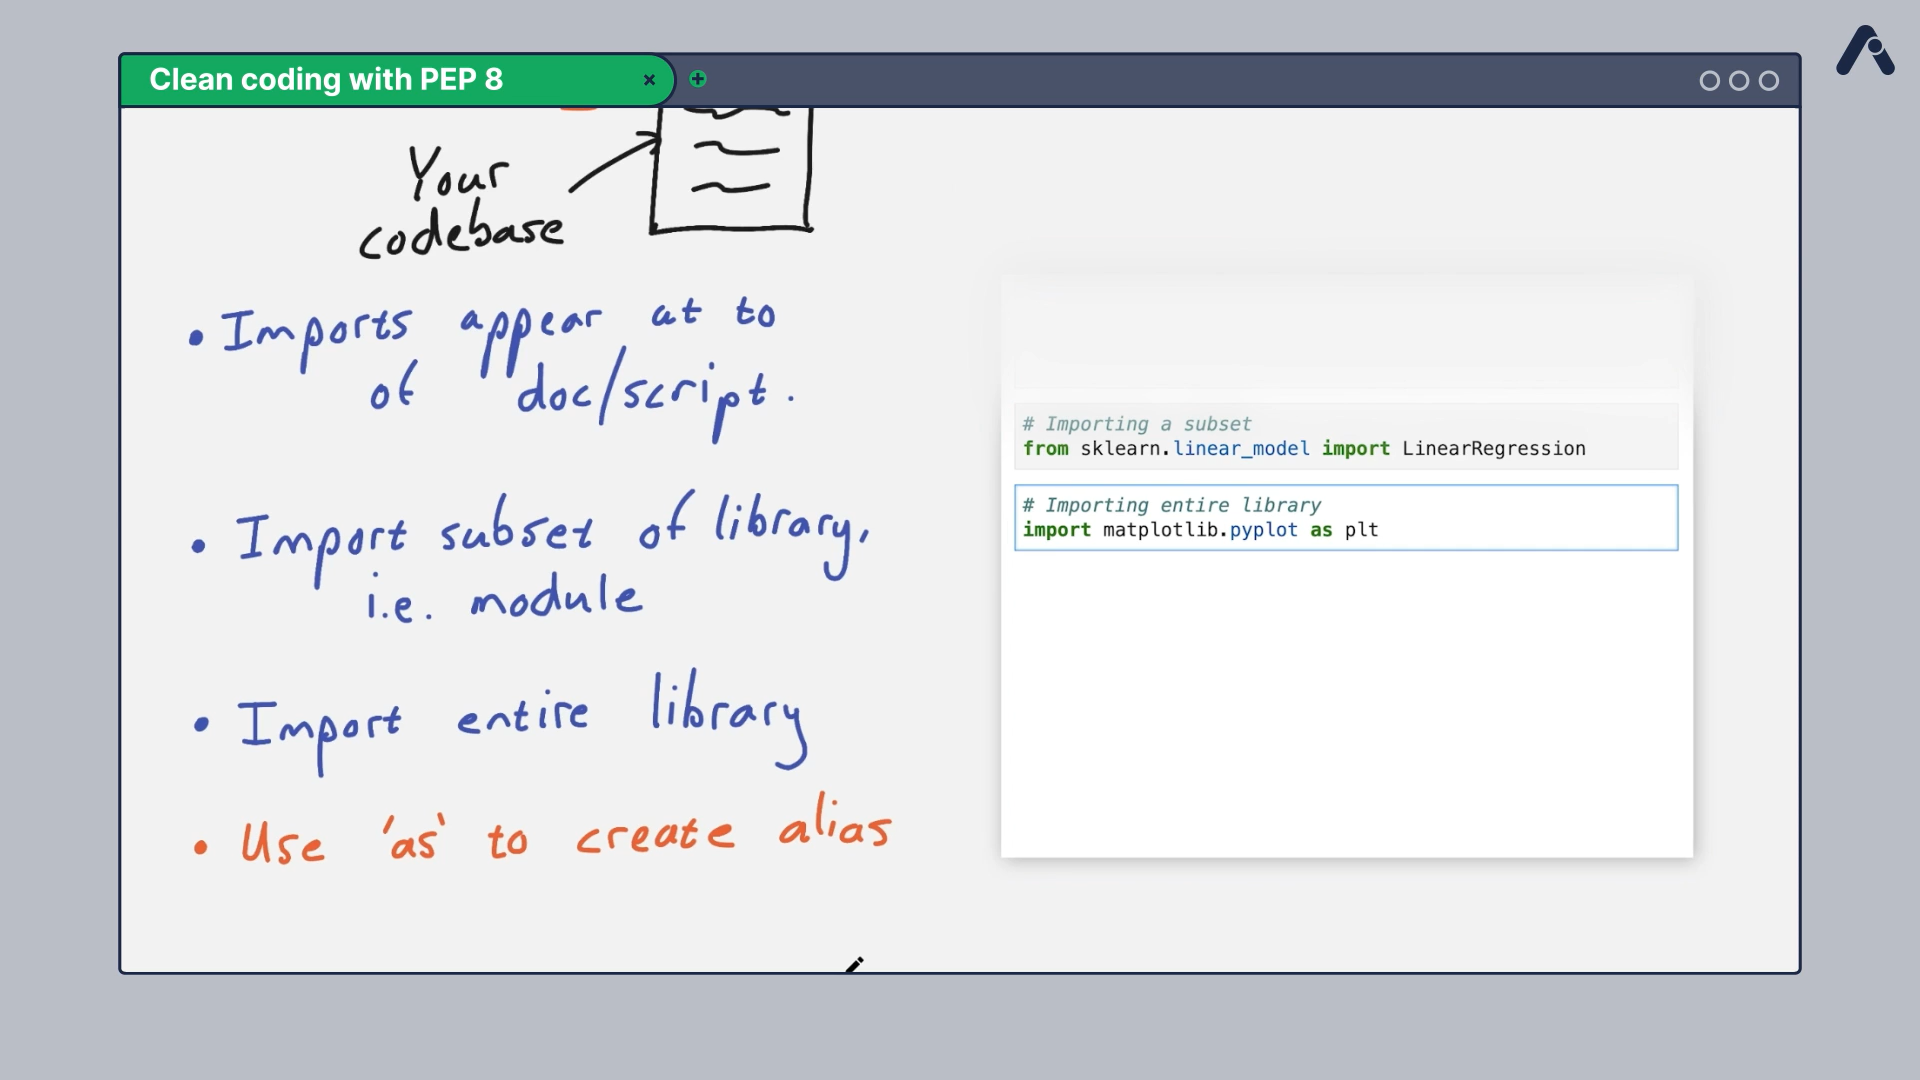 Clean coding with PEP 8
Your
codebase
• Imports appear at to
of doc/script.
• Import subset of library,
i.e. module
• Import entire library
• Use 'as' to create alias
# Importing a subset
from sklearn.linear_model import LinearRegression
# Importing entire library
import matplotlib.pyplot as plt